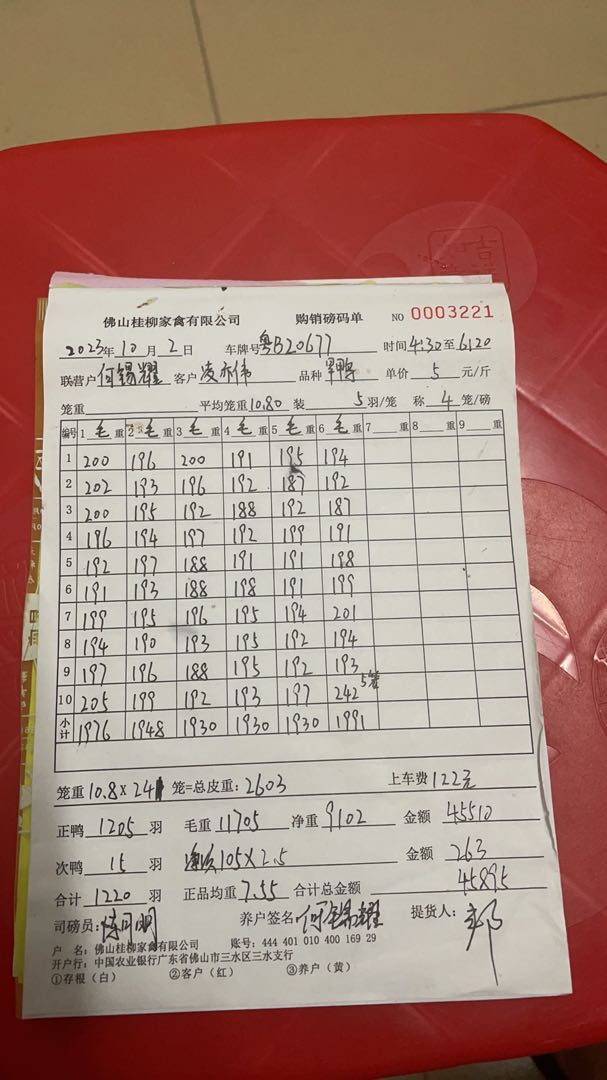 佛山桂柳家禽有限公司 购销磅码单 NO 0003221
2023年10月2日 车牌号粤B20677 时间4:30至6:20
联营户何锡耀 客户凌亦伟 品种 单价5元/斤
笼重 平均笼重10.80 装5羽/笼 称4笼/磅
编号 1毛重 2毛重 3毛重 4毛重 5毛重 6毛重 7重 8重 9重
1 200 196 200 191 195 194
2 202 193 196 192 187 192
3 200 195 192 188 192 187
4 196 194 197 192 199 191
5 192 197 188 191 191 198
6 191 193 188 198 191 199
7 199 195 196 195 194 201
8 194 190 193 195 192 194
9 197 196 188 195 192 193
10 205 199 192 193 197 242 5笼
小计 1976 1948 1930 1930 1930 1991
笼重10.8×241笼=总皮重:2603 上车费122元
正鸭1205羽 毛重11705 净重9102 金额45510
次鸭15羽 105×2.5 金额263
合计1220羽 正品均重7.55 合计总金额45895
司磅员: 养户签名:何锡耀 提货人:
户 名:佛山桂柳家禽有限公司 账号:444 401 010 400 169 29
开户行:中国农业银行广东省佛山市三水区三水支行
①存根(白) ②客户(红) ③养户(黄)